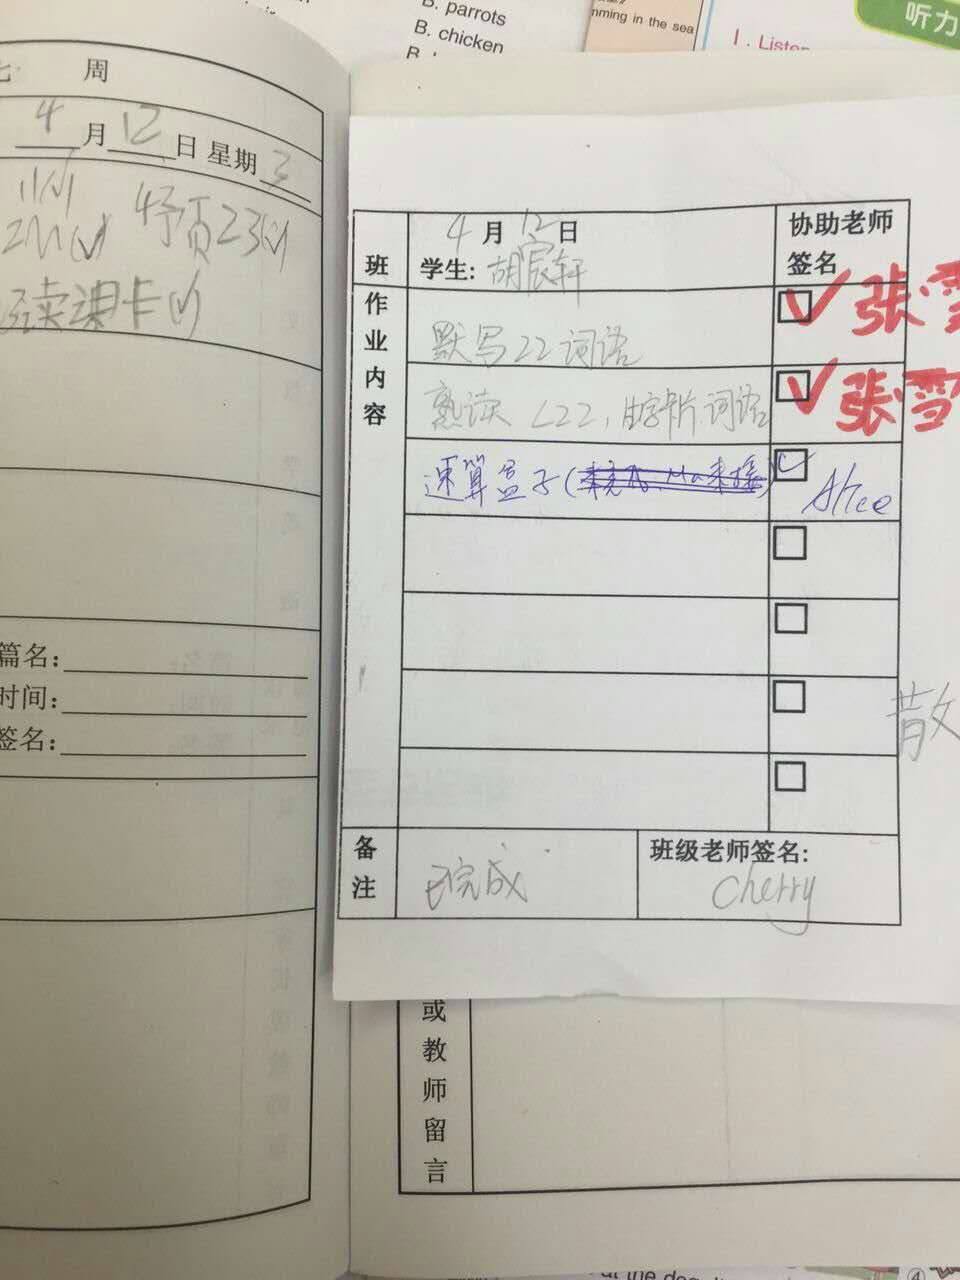 B. parrots
B. chicken
mming in the sea
I. Listen
听力
七 周
4月12日 星期3
预页23(√)
读课卡(√)
篇名:
时间:
签名:
班
4月12日
学生: 胡宸轩
协助老师
签名
作业内容
默写22词语
√ 张雪
熟读 L22, 生字卡片.词语
√ 张雪
速算盒子(
√ Alice
散文
备注
已完成
班级老师签名:
Cherry
或教师留言